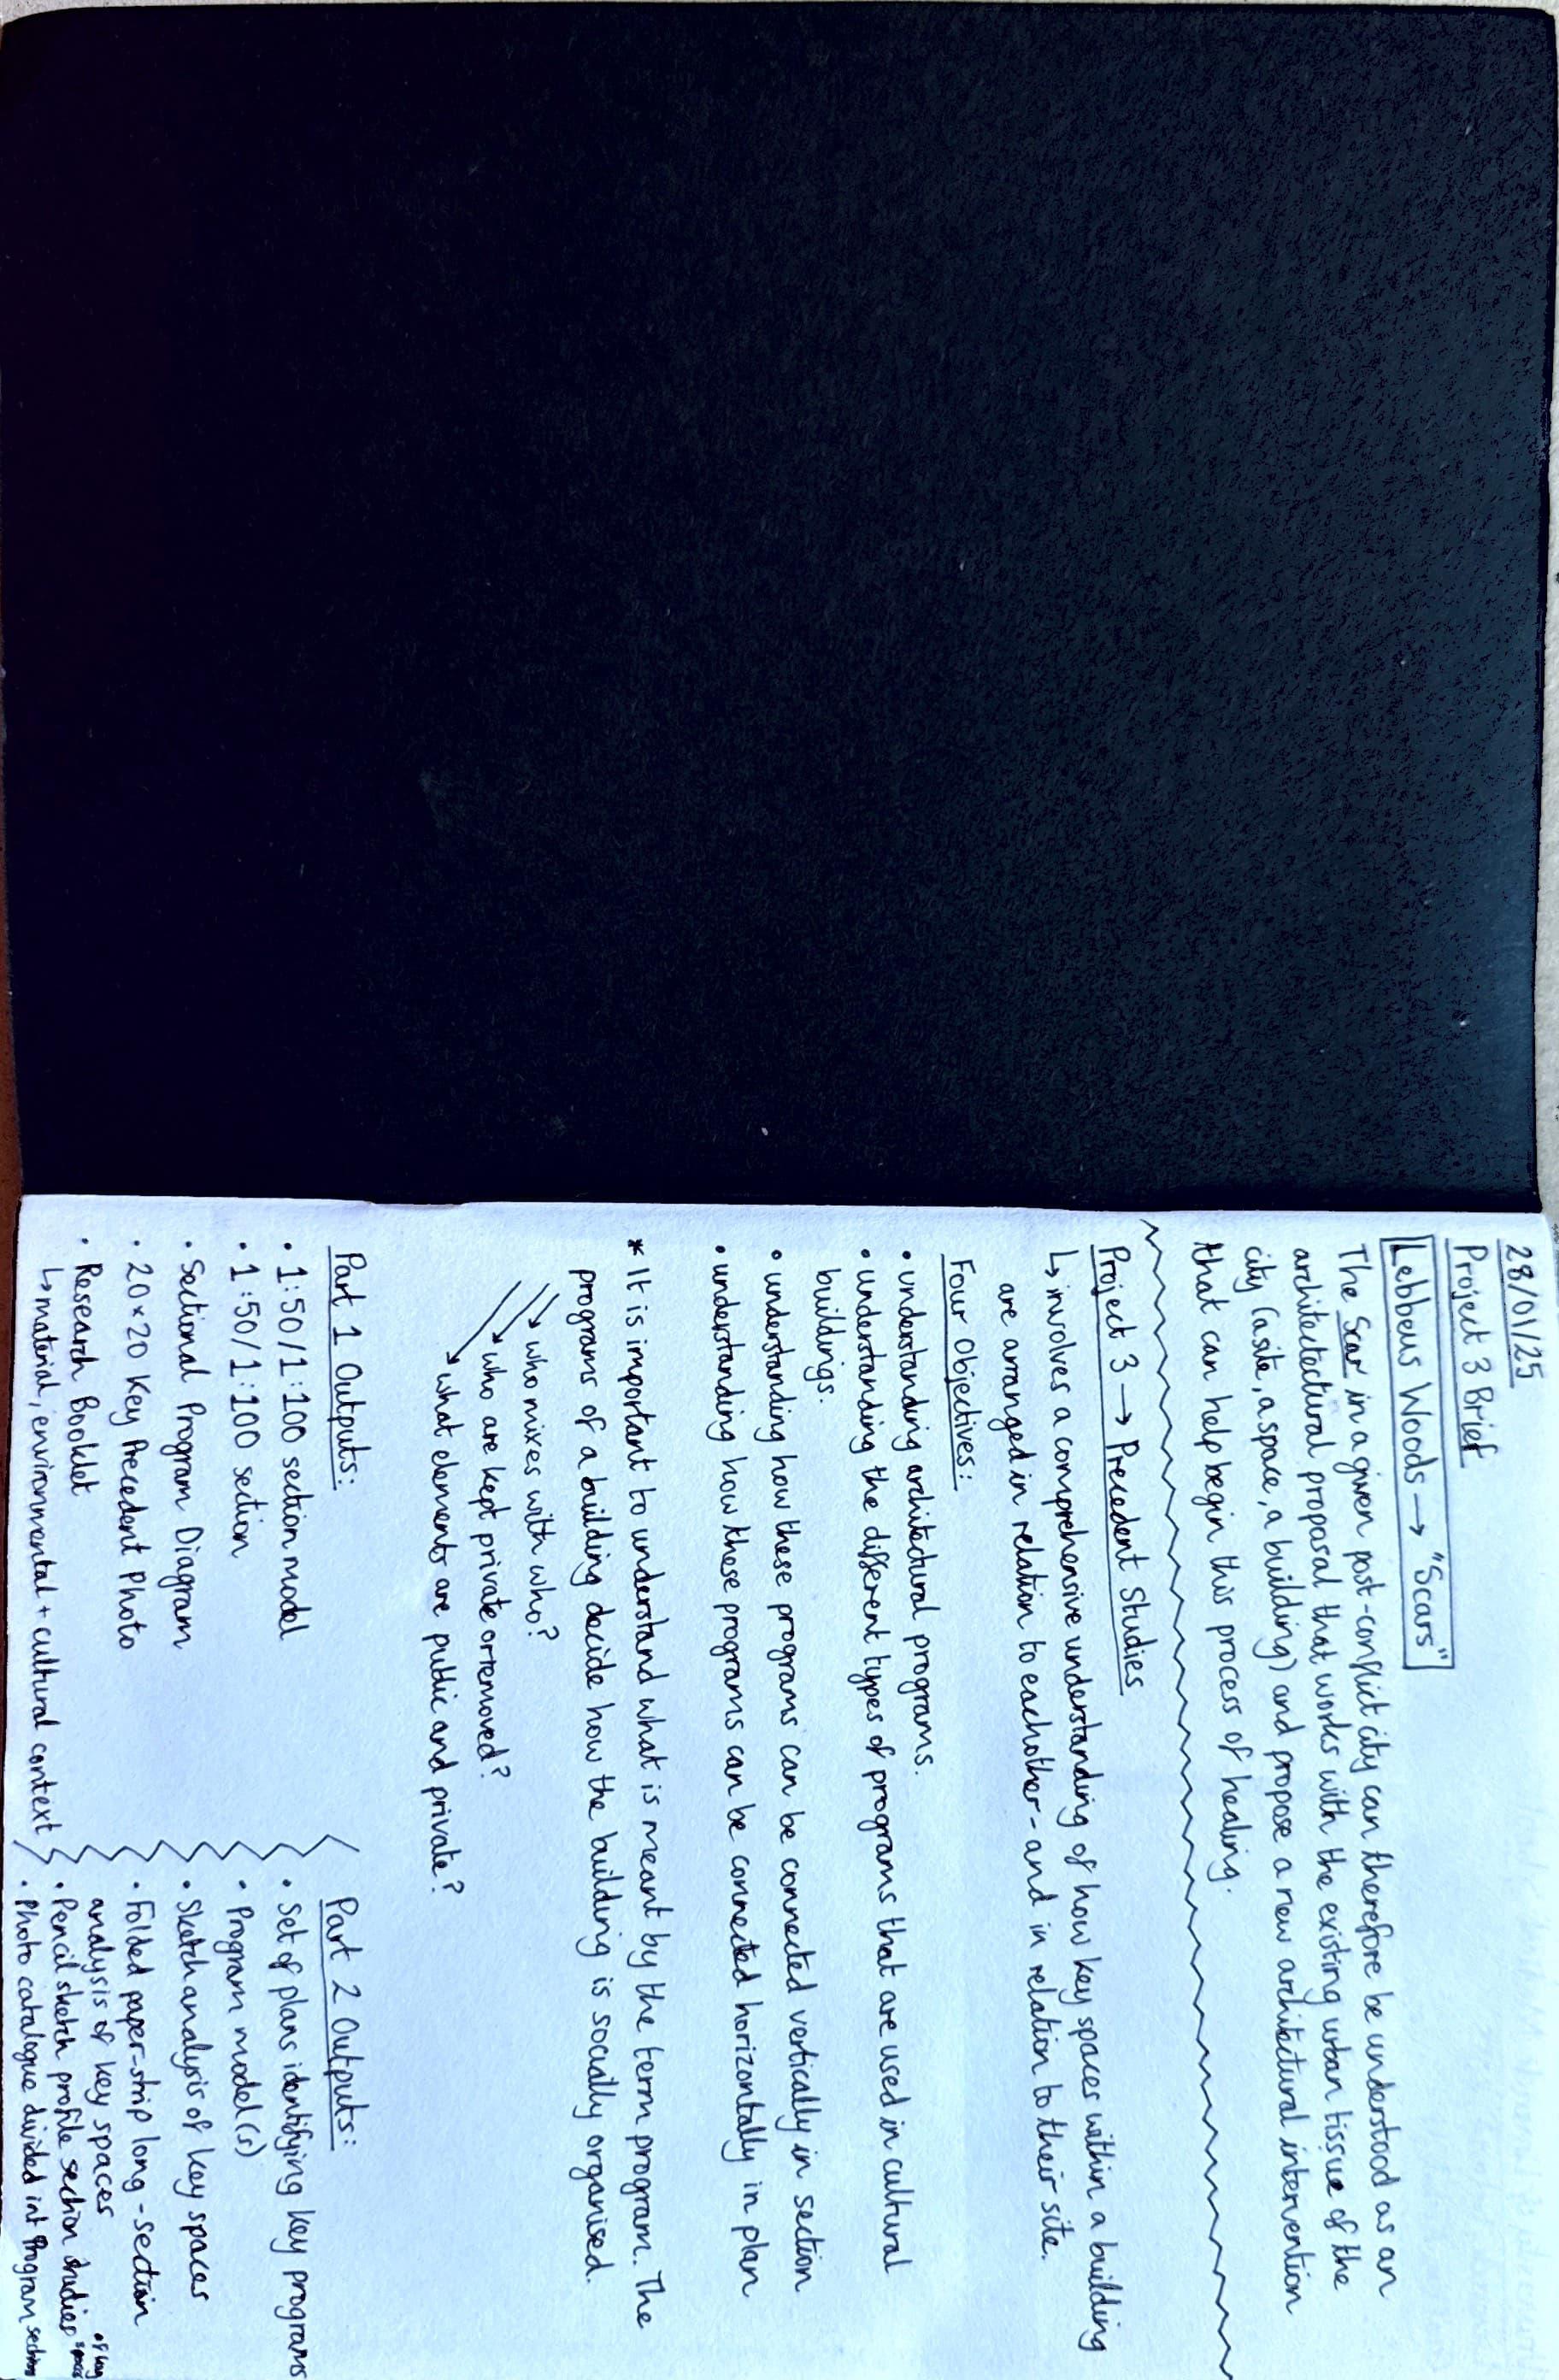 28/01/25
Project 3 Brief
Lebbeus Woods → "Scars"
The Scar in a given post-conflict city can therefore be understood as an
architectectural proposal that works with the existing urban tissue of the
city (a site, a space, a building) and propose a new architectural intervention
that can help begin this process of healing.
Project 3 → Precedent Studies
↳ involves a comprehensive understanding of how key spaces within a building
are arranged in relation to eachother - and in relation to their site.
Four Objectives:
• understanding architectural programs.
• understanding the different types of programs that are used in cultural
buildings.
• understanding how these programs can be connected vertically in section
• understanding how these programs can be connected horizontally in plan
* It is important to understand what is meant by the term program. The
programs of a building decide how the building is socially organised.
→ who mixes with who?
→ who are kept private or removed?
→ what elements are public and private?
Part 1 Outputs:
• 1:50/1:100 section model
• 1:50/1:100 section
• Sectional Program Diagram
• 20×20 Key Precedent Photo
• Research Booklet
↳ material, environmental + cultural context
Part 2 Outputs:
• Set of plans identifying key programs
• Program model(s)
• Sketch analysis of key spaces
• Folded paper-strip long-section
analysis of key spaces
• Pencil sketch profile section studies of key spaces
• Photo catalogue divided int Program sections